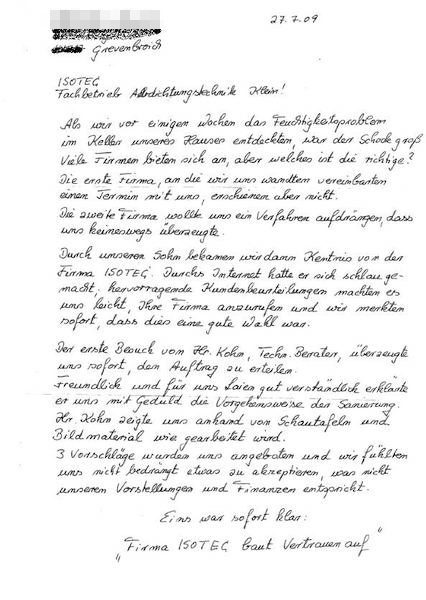 27.7.09
Grevenbroich
ISOTEC
Fachbetrieb Abdichtungstechnik Klein!
Als wir vor einigem Wochen das Feuchtigkeitsproblem
im Keller unseres Hauses entdeckten, war der Schock groß
Viele Firmen bieten sich an, aber welches ist die richtige?
Die erste Firma, an die wir uns wandten vereinbarten
einen Termin mit uns, erschienen aber nicht.
Die zweite Firma wollte uns ein Verfahren aufdrängen, dass
uns keineswegs überzeugte.
Durch unseren Sohn bekamen wir dann Kentnis von der
Firma ISOTEC. Durchs Internet hatte er sich schlau ge-
macht. hervorragende Kundenbeurteilungen machten es
uns leicht, Ihre Firma anzurufen und wir merkten
sofort, dass dies eine gute Wahl war.
Der erste Besuch vom Hr. Kohn, Techn. Berater, überzeugte
uns sofort, den Auftrag zu erteilen.
Freundlich und für uns Laien gut verständlich erklärte
er uns mit Geduld die Vorgehensweise der Sanierung.
Hr. Kohn zeigte uns anhand von Schautafeln und
Bildmaterial wie gearbeitet wird.
3 Vorschläge wurden uns angeboten und wir fühlten
uns nicht bedrängt etwas zu akzeptieren, was nicht
unseren Vorstellungen und Finanzen entspricht.
Eins war sofort klar:
„Firma ISOTEC baut Vertrauen auf"